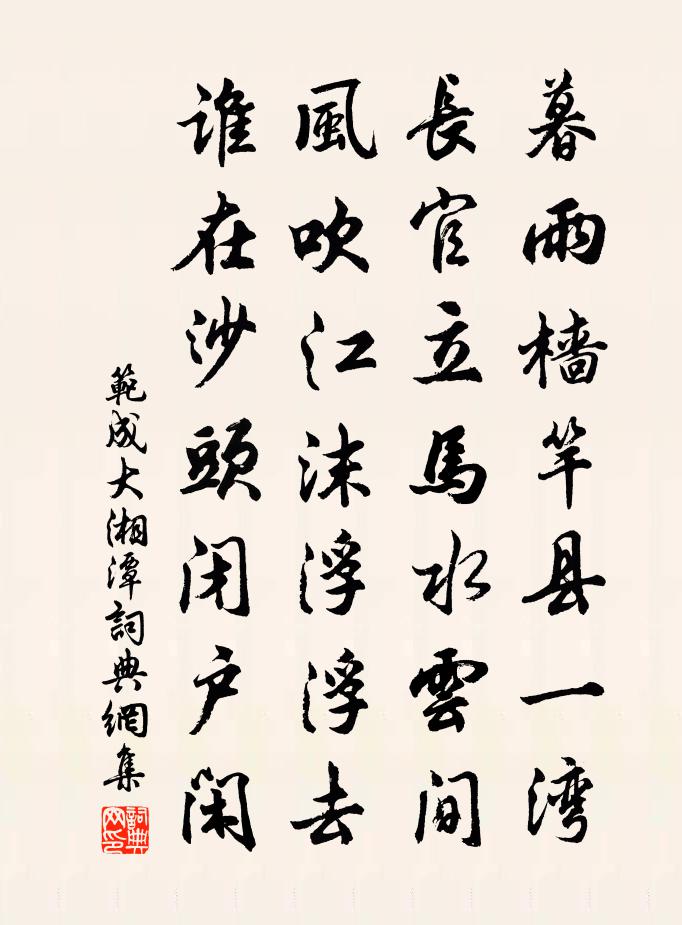 暮雨檣竿县一湾
長官立馬水雲间
風吹江沫浮浮去
誰在沙頭闭户闲
範成大湘潭詞典網集
詞典网印